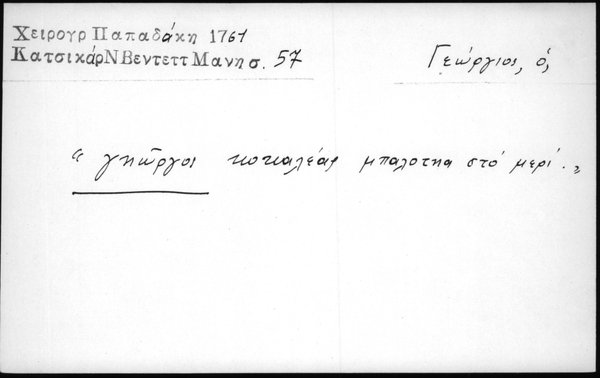 Χειρογρ Παπαδάκη 1761
Κατσικάρ Ν Βεντεττ Μανη σ. 57
Γεώργιος, ὁ,
“ γηῶργος κοκαλέας μπαλοτηα στό μερί. „